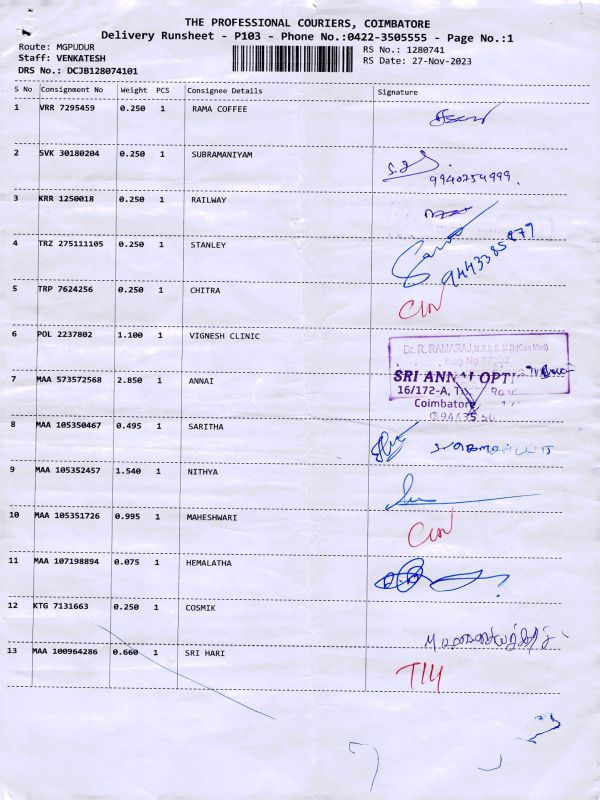 THE PROFESSIONAL COURIERS, COIMBATORE
Delivery Runsheet - P103 - Phone No.:0422-3505555 - Page No.:1
Route: MGPUDUR
RS No.: 1280741
Staff: VENKATESH
RS Date: 27-Nov-2023
DRS No.: DCJB128074101
S No Consignment No Weight PCS Consignee Details Signature
1 VRR 7295459 0.250 1 RAMA COFFEE
2 SVK 30180204 0.250 1 SUBRAMANIYAM
9940254999.
3 KRR 1250018 0.250 1 RAILWAY
4 TRZ 275111105 0.250 1 STANLEY
9443385879
5 TRP 7624256 0.250 1 CHITRA
6 POL 2237802 1.100 1 VIGNESH CLINIC
Dr. R. RAMARAJ, M.B.B.S., M.D.(Gen Med)
Reg No
7 MAA 573572568 2.850 1 ANNAI
SRI ANNAI OPTI
16/172-A,
Coimbatore
8 MAA 105350467 0.495 1 SARITHA
9 MAA 105352457 1.540 1 NITHYA
10 MAA 105351726 0.995 1 MAHESHWARI
11 MAA 107198894 0.075 1 HEMALATHA
12 KTG 7131663 0.250 1 COSMIK
13 MAA 100964286 0.660 1 SRI HARI